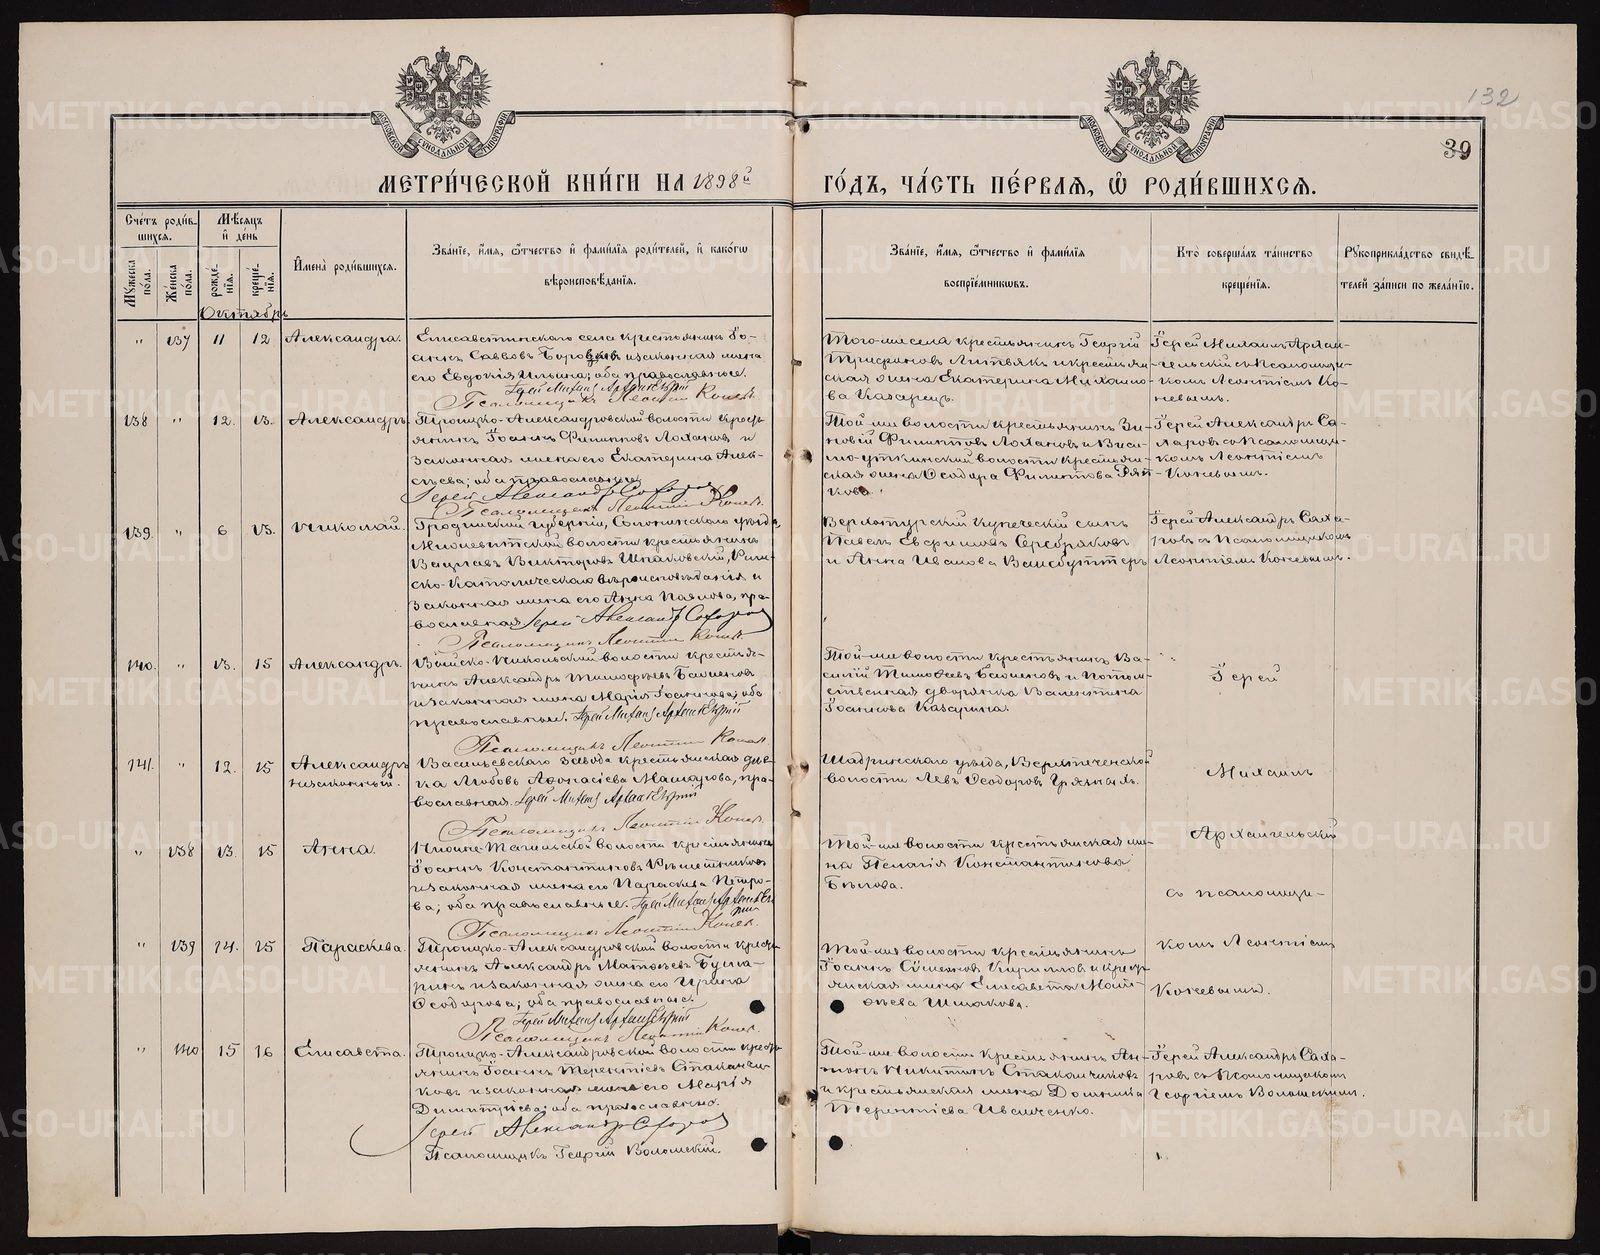 132
39
МЕТРИ́ЧЕСКОЙ КНИ́ГИ НА 1898й ГО́ДЪ, ЧА́СТЬ ПЕ́РВАЯ, Ѡ҆ РОДИ́ВШИХСЯ.
Сче́тъ роди́в-
шихся.
Мѣ́сяцъ
и҆ де́нь
Мꙋ́жеска по́ла.
Же́нска по́ла.
рожде́-
нїя.
креще́-
нїя.
И҆мена̀ роди́вшихся.
Зва́нїе, и҆́мя, ѻ҆́тчество и҆ фами́лїя роди́телей, и҆ како́гѡ
вѣроисповѣ́данїя.
Зва́нїе, и҆́мя, ѻ҆́тчество и҆ фами́лїя
воспрїе́мниковъ.
Кто̀ соверша́лъ та́инство
креще́нїя.
Рꙋкоприкла́дство свидѣ́-
телей за́писи по жела́нїю.
Октябрь
" 137 11 12 Александра.
Елисаветинскаго села крестьянинъ Іо-
аннъ Саввовъ и законная жена
его Евдокія Ильина; оба православные.
Іерей Михаилъ Архангельскій
Псаломщикъ Леонтій Коневъ.
Того-же села крестьянинъ Георгій
Трифоновъ Литвякъ и крестьян-
ская жена Екатерина Михаило-
ва
Іерей Михаилъ Архан-
гельскій съ Псаломщи-
комъ Леонтіемъ Ко-
невымъ.
138 " 12. 13. Александръ.
Троицко-Александровской волости кресть-
янинъ Іоаннъ Филипповъ Лохановъ и
законная жена его Екатерина Алек-
сѣева; оба православные
Іерей Александръ Сахаровъ
Псаломщикъ Леонтій Коневъ.
Той-же волости крестьянинъ Зи-
новій Филипповъ Лохановъ и Виси-
мо-уткинской волости крестьян-
ская жена Ѳеодора Филиппова Ряп-
кова.
Іерей Александръ Са-
харовъ съ Псаломщи-
комъ Леонтіемъ
Коневымъ.
139. " 6 13. Николай.
Гродненской губерніи, Слонимскаго уѣзда
волости крестьянинъ
Вацлавъ Викторовъ Шпаковскій, Рим-
ско-Католическаго вѣроисповѣданія и
законная жена его Анна Павлова, пра-
вославная Іерей Александръ Сахаровъ
Псаломщикъ Леонтій Коневъ.
Верхотурскій купеческій сынъ
Павелъ Евфимовъ Серебряковъ
и Анна Иванова
Іерей Александръ Саха-
ровъ съ Псаломщикомъ
Леонтіемъ Коневымъ.
140. " 13. 15 Александръ.
Николь-скій волости крестья-
нинъ Александръ Тимоѳеевъ Баженовъ
и законная жена Марія Іоаннова; оба
православные. Іерей Михаилъ Архангельскій
Псаломщикъ Леонтій Коневъ.
Той-же волости крестьянинъ Ва-
силій Тимоѳеевъ Баженовъ и потом-
ственная дворянка Валентина
Іоаннова Казарина.
Іерей
141. " 12. 15 Александръ
незаконный.
Васильевскаго завода крестьянская дѣв-
ка Любовь Аѳанасіева Машарова, пра-
вославная. Іерей Михаилъ Архангельскій
Псаломщикъ Леонтій Коневъ.
Шадринскаго уѣзда, Верхтеченской
волости Левъ Ѳеодоровъ Грязныхъ.
Михаилъ
Архангельскій
" 138 13. 15 Анна.
Нижне-Тагильской волости крестьянинъ
Іоаннъ Константиновъ Рѣшетниковъ
и законная жена его Параскева Петро-
ва; оба православные. Іерей Михаилъ Архангель-
скій
Псаломщикъ Леонтій Коневъ.
Той-же волости крестьянская же-
на Пелагія Константинова
Бѣлова.
съ псаломщи-
" 139 14. 15 Параскева.
Троицко-Александровской волости кресть-
янинъ Александръ Матѳеевъ
и законная жена его Ирина
Ѳеодорова; оба православные.
Іерей Михаилъ Архангельскій
Псаломщикъ Леонтій Коневъ.
Той-же волости крестьянинъ
Іоаннъ Симеоновъ и кресть-
янская жена Елисавета Мат-
ѳеева Шмакова.
комъ Леонтіемъ
Коневымъ.
" 140 15 16 Елисавета.
Троицко-Александровской волости кресть-
янинъ Іоаннъ Терентіевъ Стаканчи-
ковъ и законная жена его Марія
Димитріева; оба православные.
Іерей Александръ Сахаровъ
Псаломщикъ Георгій Воломскій.
Той-же волости крестьянинъ Ан-
тонъ Никитинъ Стаканчиковъ
и крестьянская жена Домника
Терентіева Иванченко.
Іерей Александръ Саха-
ровъ съ Псаломщикомъ
Георгіемъ Воломскимъ.
METRIKI.GASO-URAL.RU